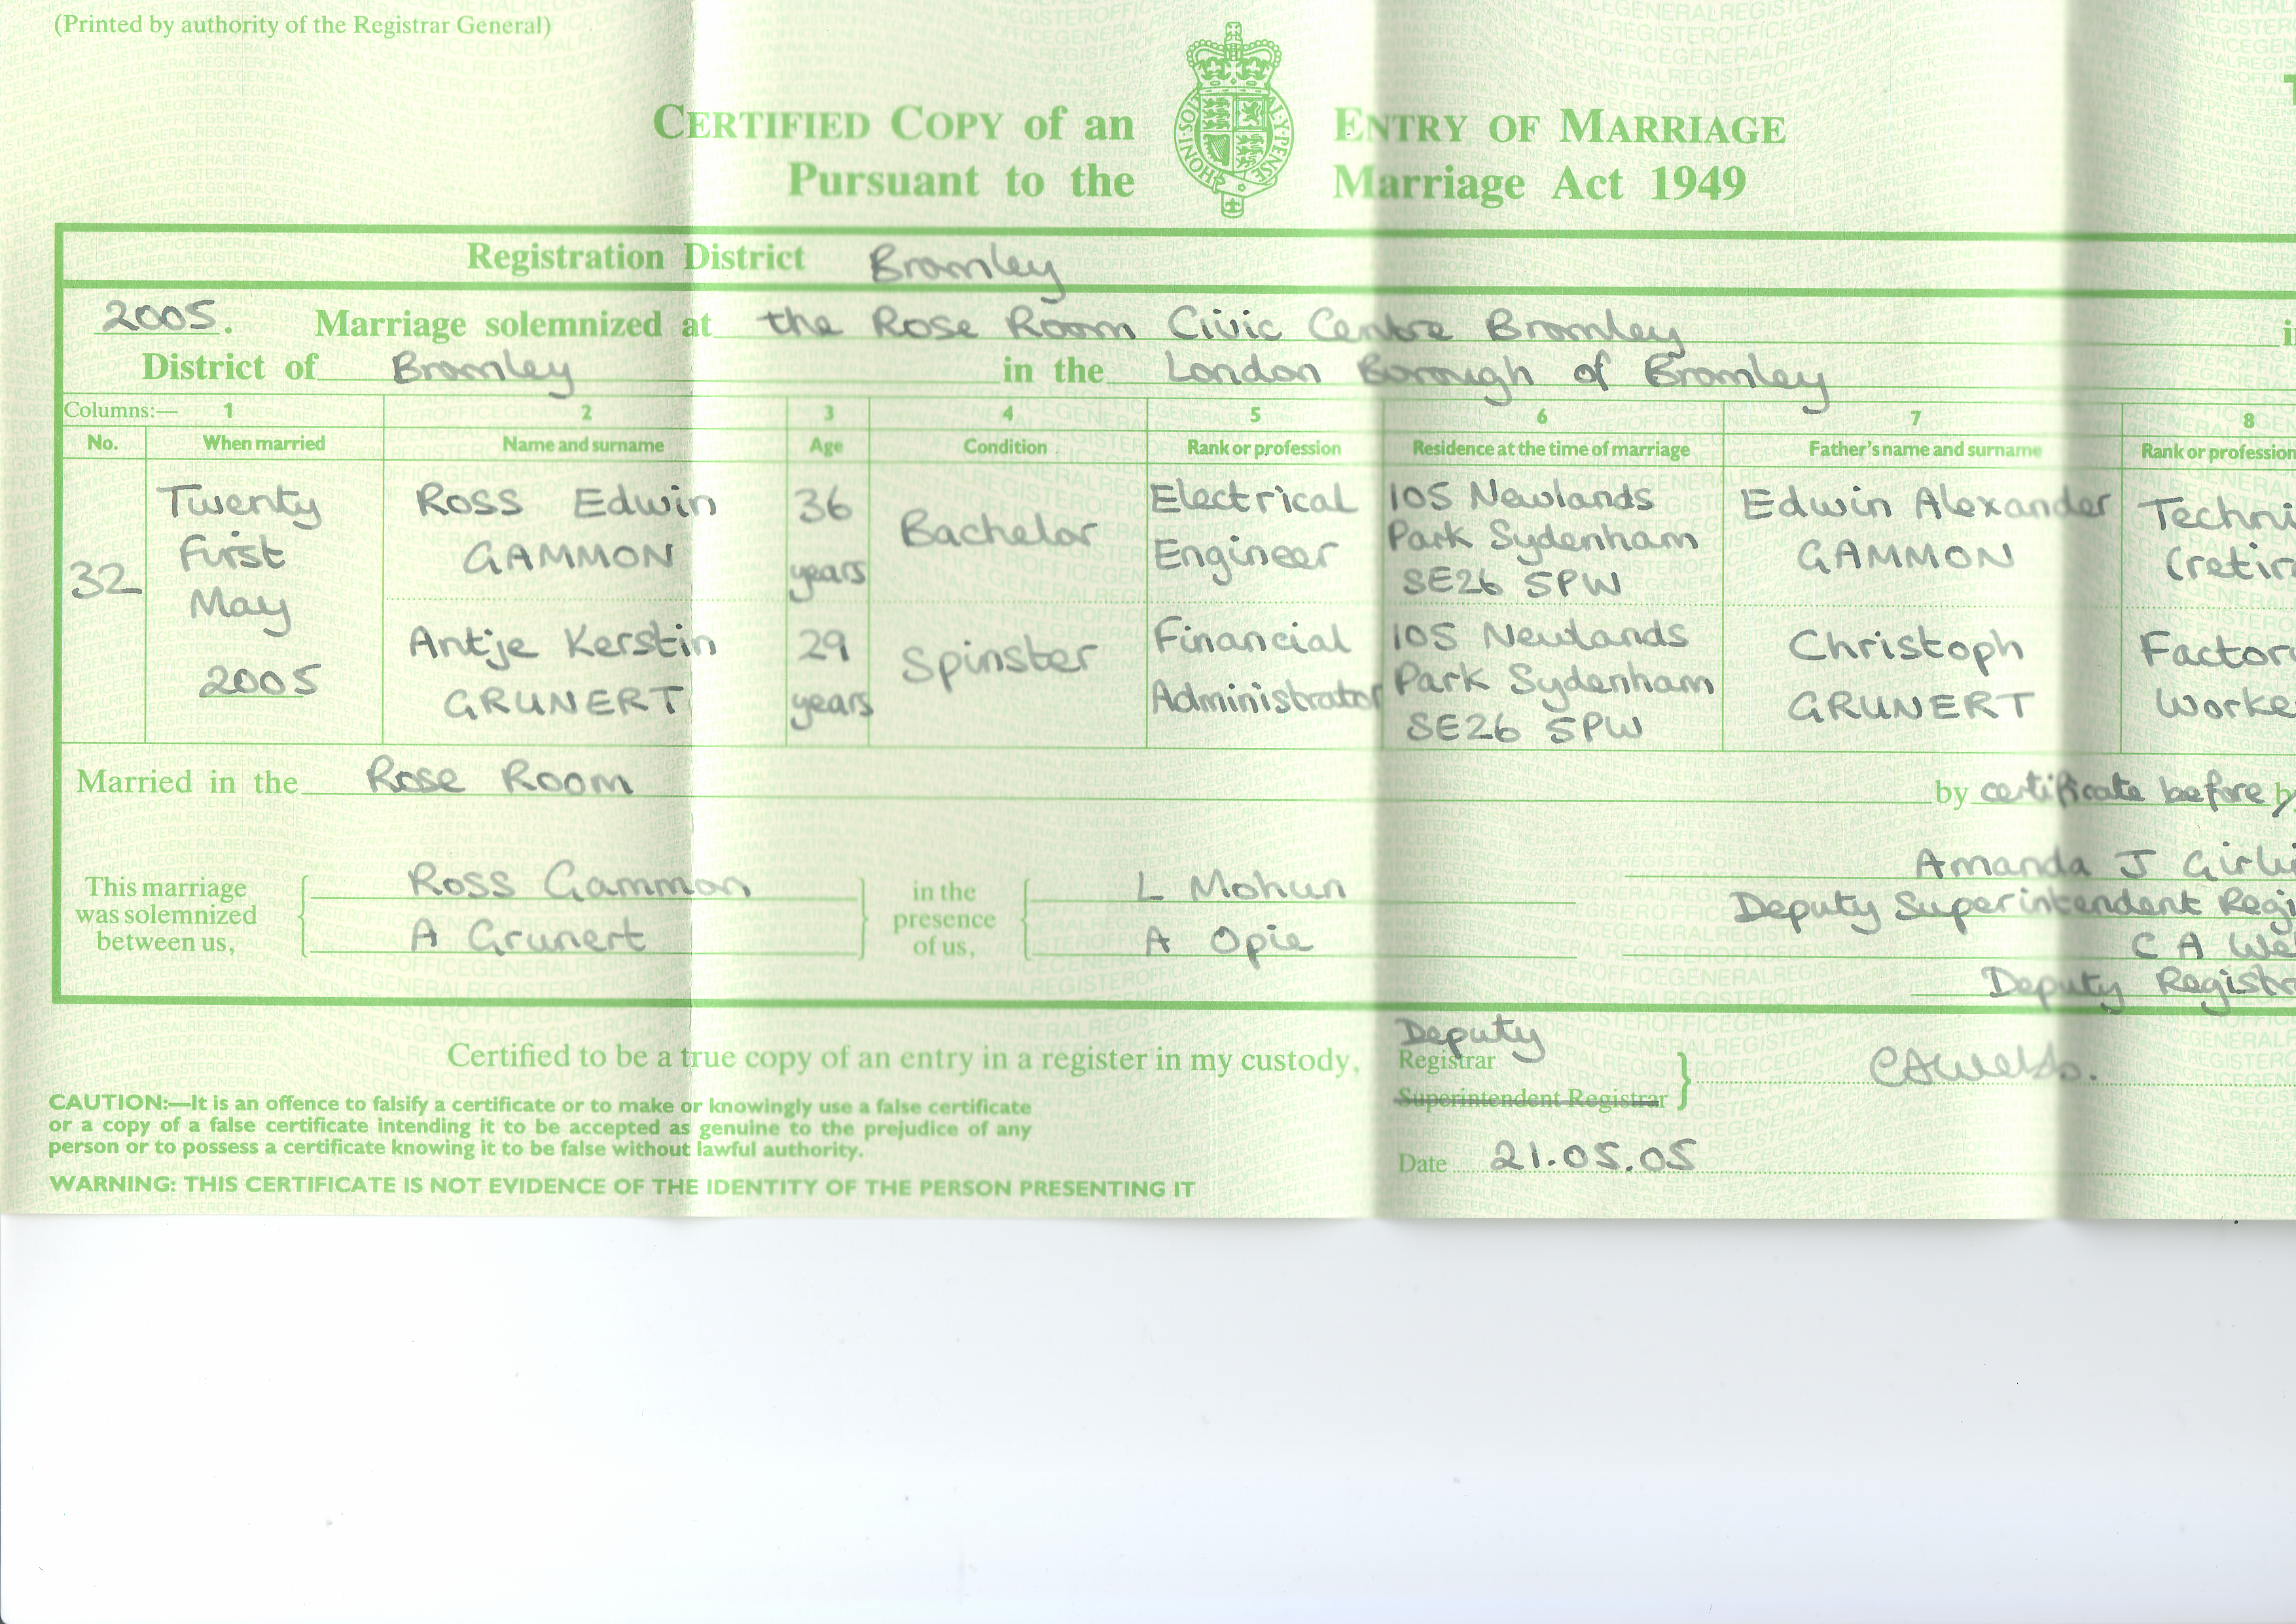 (Printed by authority of the Registrar General)
CERTIFIED COPY of an ENTRY OF MARRIAGE
Pursuant to the Marriage Act 1949
HONI·SOIT ·MAL·Y·PENSE
Registration District Bromley
2005. Marriage solemnized at the Rose Room Civic Centre Bromley
District of Bromley in the London Borough of Bromley
Columns:— 1 2 3 4 5 6 7 8
No. When married Name and surname Age Condition Rank or profession Residence at the time of marriage Father's name and surname Rank or profession
32 Twenty First May 2005
Ross Edwin GAMMON 36 years Bachelor Electrical Engineer 105 Newlands Park Sydenham SE26 5PW Edwin Alexander GAMMON
Antje Kerstin GRUNERT 29 years Spinster Financial Administrator 105 Newlands Park Sydenham SE26 5PW Christoph GRUNERT
Married in the Rose Room by certificate before
This marriage was solemnized between us, Ross Gammon A Grunert in the presence of us, L Mohun A Opie
Amanda J
Deputy Superintendent
C A
Deputy
Certified to be a true copy of an entry in a register in my custody, Deputy Registrar
Superintendent Registrar
CAUTION:—It is an offence to falsify a certificate or to make or knowingly use a false certificate
or a copy of a false certificate intending it to be accepted as genuine to the prejudice of any
person or to possess a certificate knowing it to be false without lawful authority.
Date 21.05.05
WARNING: THIS CERTIFICATE IS NOT EVIDENCE OF THE IDENTITY OF THE PERSON PRESENTING IT